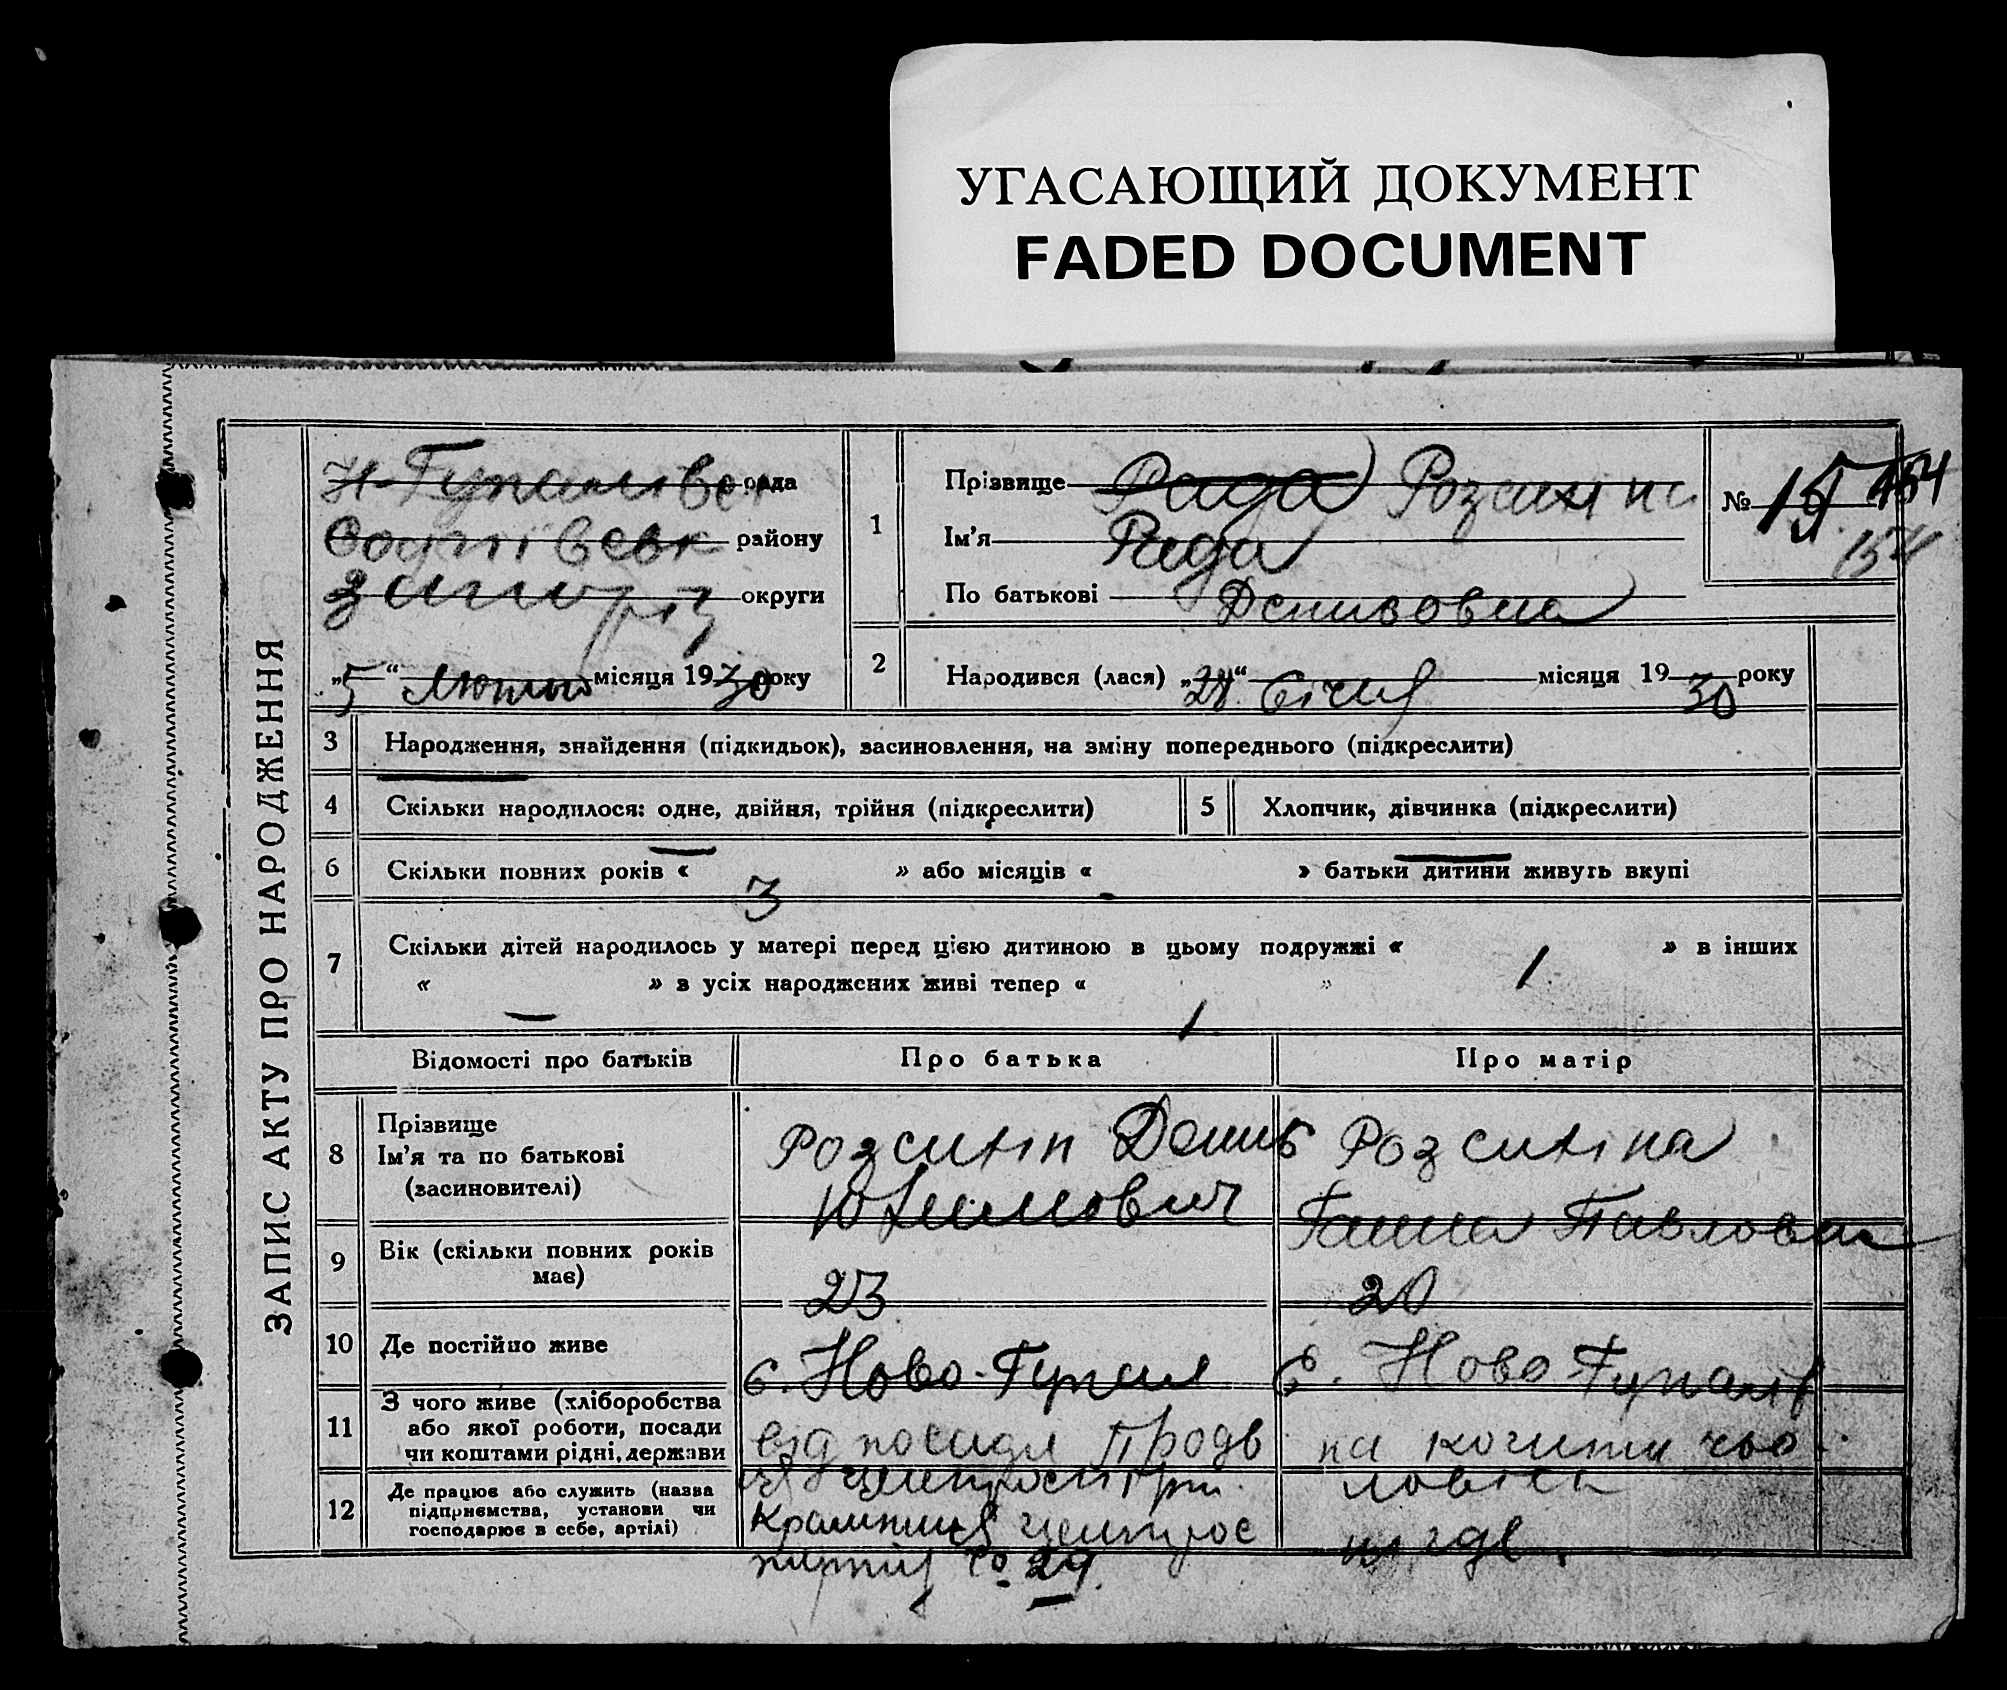 УГАСАЮЩИЙ ДОКУМЕНТ
FADED DOCUMENT
ЗАПИС АКТУ ПРО НАРОДЖЕННЯ
Н-Гупалівск рада
району
округи
„5“ Лютого місяця 1930 року
1
Прізвище Рада Розсипна
Ім'я Рада
По батькові Денисовна
№ 15 154
154
2
Народився (лася) „28“ Січня місяця 1930 року
3 Народження, знайдення (підкидьок), засиновлення, на зміну попереднього (підкреслити)
4 Скільки народилося: одне, двійня, трійня (підкреслити)
5 Хлопчик, дівчинка (підкреслити)
6 Скільки повних років « 3 » або місяців « - » батьки дитини живуть вкупі
7 Скільки дітей народилось у матері перед цією дитиною в цьому подружжі « 1 » в інших
« — » з усіх народжених живі тепер « 1 »
Відомості про батьків
Про батька
Про матір
8 Прізвище
Ім'я та по батькові
(засиновителі)
Денис
Юхимович
Ганна Павловна
9 Вік (скільки повних років
має)
23
20
10 Де постійно живе
с. Ново-Гупал
с. Ново Гупалів
11 З чого живе (хліборобства
або якої роботи, посади
чи коштами рідні, держави
від посади
на кошти чо
ловіка
12 Де працює або служить (назва
підприємства, установи чи
господарює в себе, артілі)
Крамниця
29